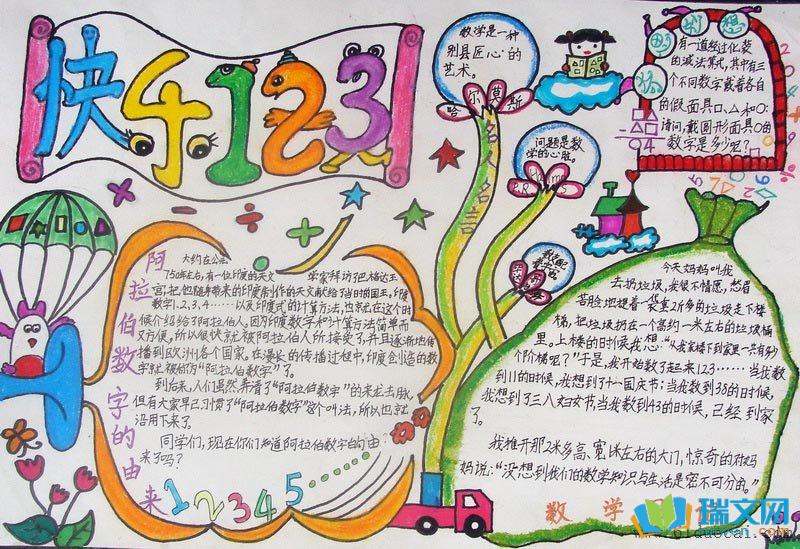 快乐123
数学是一种
别具匠心的
艺术。
哈尔莫斯
名人名言
问题是数
学的心脏。
数支配
着宇宙
有一道经过化装
的减法算式,其中有三
个不同数字戴着各自
的假面具口、△和○。
请问,戴圆形面具○的
数字是多少呢?
阿拉伯数字的由来
大约在公元
750年左右,有一位印度的天文学家拜访了巴格达王
宫,把他随身带来的印度制作的天文献给了当时的国王。印度
数字1、2、3、4……以及印度式的计算方法,也就在这个时
候介绍给了阿拉伯人。因为印度数字和计算方法简单而
又方便,所以很快就被阿拉伯人所接受了,并且逐渐地传
播到欧洲各个国家。在漫长的传播过程中,印度创造的数
字就被称为"阿拉伯数字"了。
到后来,人们虽然弄清了"阿拉伯数字"的来龙去脉,
但有大家早已习惯了"阿拉伯数字"这个叫法,所以也就
沿用下来了。
同学们,现在你们知道阿拉伯数字的由
来了吗?
12345……
今天妈妈叫我
去扔垃圾,我很不情愿,愁眉
苦脸地提着一袋重2斤多的垃圾走下楼
梯,把垃圾扔在一个高约一米左右的垃圾桶
里。上楼的时候我想:"从我家楼下到家里一共有多少
个阶梯呢?"于是,我开始数了起来123……当我数
到11的时候,我想到了十一国庆节;当我数到38的时候,
我想到了三八妇女节,当我数到43的时候,已经到家
了。
我推开那2米多高、宽1米左右的大门,惊奇的对妈
妈说:"没想到我们的数学知识与生活是密不可分的。"
数学
瑞文网